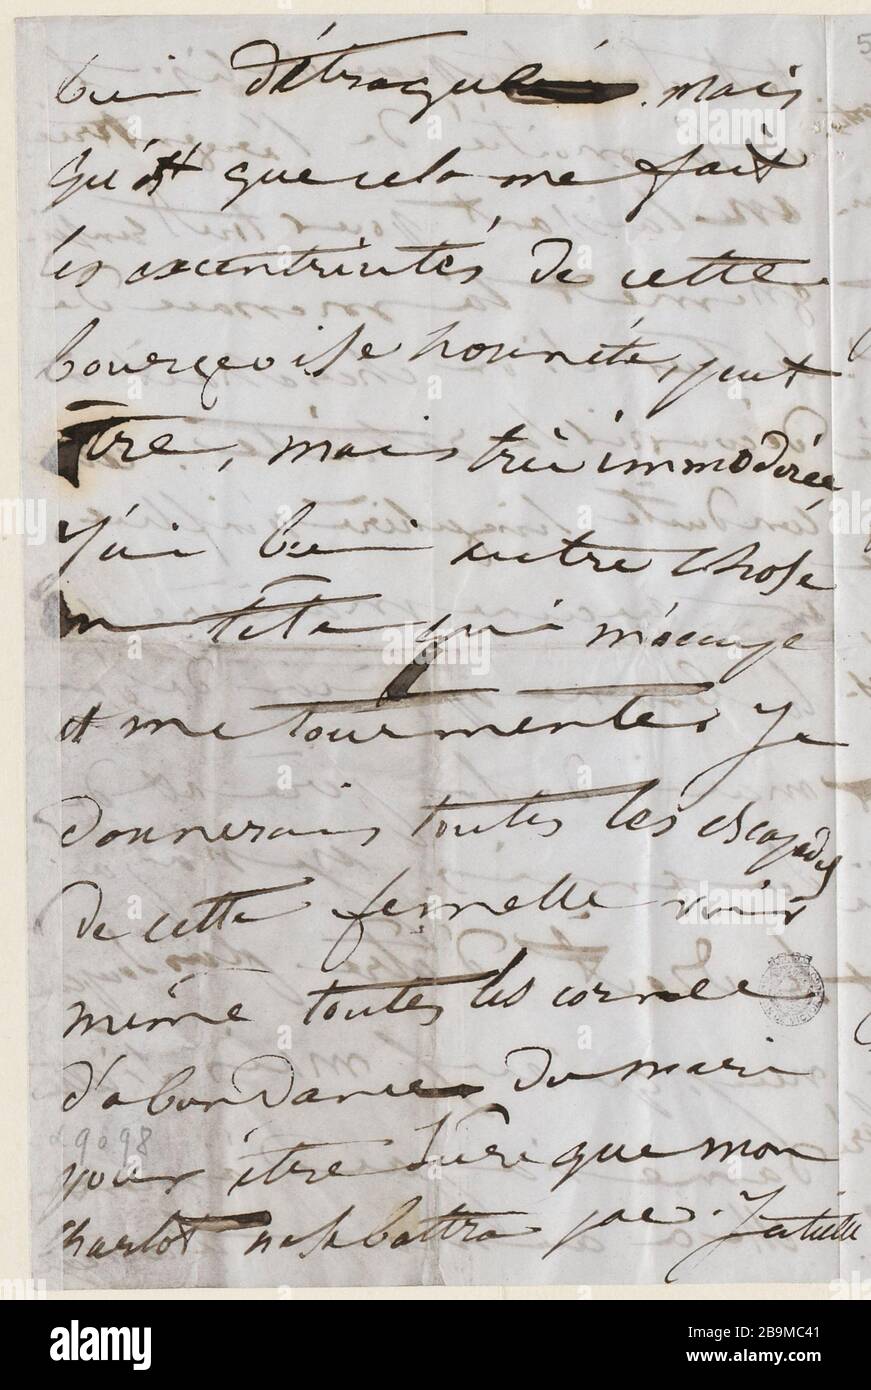 bien détraquée. mais
qu'est que cela me fait
les excentricités de cette
bourgeoise honnête, peut
être, mais très immodérée,
j'ai bien autre chose
en tête qui m'occupe
et me tourmente. Je
donnerais toutes les escapades
de cette femelle voir
même toutes les cornes
d'abondances du mari
pour être sûre que mon
charlot ne se battra pas.
a
alamy
Image ID: 2B9MC41
www.alamy.com